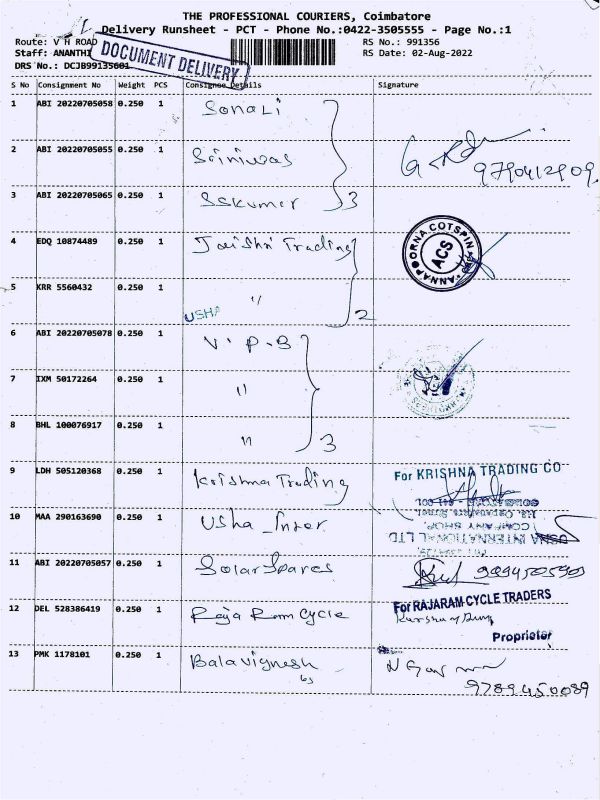 THE PROFESSIONAL COURIERS, Coimbatore
Delivery Runsheet - PCT - Phone No.:0422-3505555 - Page No.:1
Route: V H ROAD RS No.: 991356
Staff: ANANTHI RS Date: 02-Aug-2022
DOCUMENT DELIVERY
DRS No.: DCJB99135601
S No Consignment No Weight PCS Consignee Details Signature
1 ABI 20220705058 0.250 1 Sonali
2 ABI 20220705055 0.250 1 Sriniwas 9790412909
3 ABI 20220705065 0.250 1 SSKumar 3
4 EDQ 10874489 0.250 1 Jaishri Trading ANNAPOORNA COTSPIN ACS
5 KRR 5560432 0.250 1 " 2
USHA
6 ABI 20220705078 0.250 1 V.P.B
7 IXM 50172264 0.250 1 "
8 BHL 100076917 0.250 1 " 3
9 LDH 505120368 0.250 1 Krishna Trading For KRISHNA TRADING CO
10 MAA 290163690 0.250 1 Usha Inter USHA INTERNATIONAL LTD
COMPANY SHOP
11 ABI 20220705057 0.250 1 Solar Spares
12 DEL 528386419 0.250 1 Raja Ram Cycle For RAJARAM CYCLE TRADERS
Proprietor
13 PMK 1178101 0.250 1 Balavignesh
9789450089